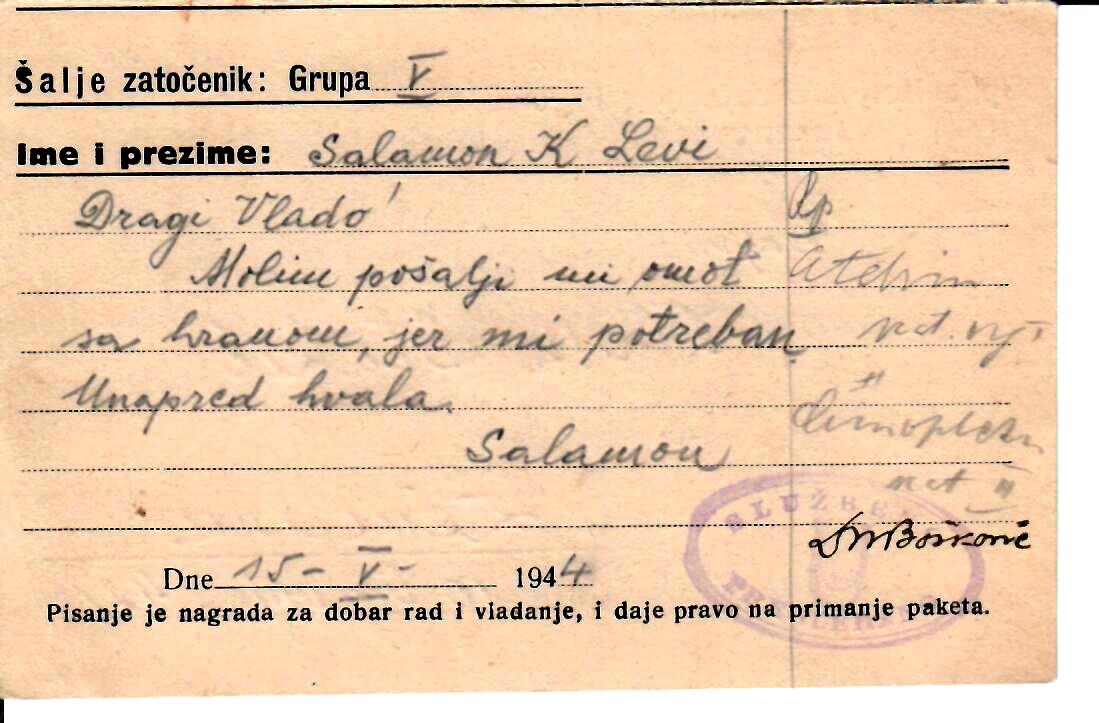 Šalje zatočenik: Grupa V
Ime i prezime: Salamon K Levi
Dragi Vlado!
Rp
Molim pošalji mi omot
sa hranom, jer mi potreban
Unapred hvala.
Salamon
SLUŽBEN
Dr Bošković
Dne 15 - V - 1944
Pisanje je nagrada za dobar rad i vladanje, i daje pravo na primanje paketa.